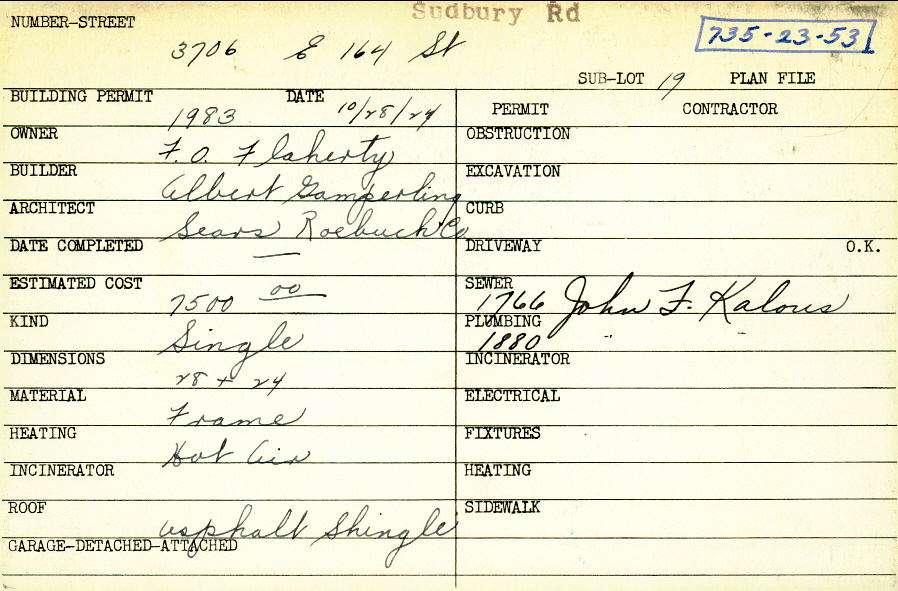 Sudbury Rd
NUMBER-STREET
3706 E 164 St
735-23-53
SUB-LOT 19 PLAN FILE
BUILDING PERMIT 1983 DATE 10/28/24
OWNER F. O. Flaherty
BUILDER Albert Gamperling
ARCHITECT Sears Roebuck Co
DATE COMPLETED —
ESTIMATED COST 7500 00
KIND Single
DIMENSIONS 28 + 24
MATERIAL Frame
HEATING Hot Air
INCINERATOR
ROOF asphalt Shingle
GARAGE-DETACHED-ATTACHED
PERMIT CONTRACTOR
OBSTRUCTION
EXCAVATION
CURB
DRIVEWAY O.K.
SEWER 1766 John F. Kalous
PLUMBING 1880 " "
INCINERATOR
ELECTRICAL
FIXTURES
HEATING
SIDEWALK